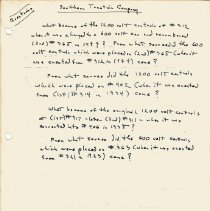 Questions
Southern Traction Company
What became of the 1200 volt controls of #312
when it was changed to a 600 volt car and renumbered
(2nd) #365 in 19? From what source did the 600
volt controls which were placed in (2nd) #365 (when it
was converted from #312 in 19) come?
From what source did the 1200 volt controls
which were placed on #302 (when it was converted
from (1st) #314 in 1934) come?
What became of the original 1200 volt controls
of (1st) #317 - later (2nd) #311 - when it was
converted into #306 in 1938?
From what source did the 600 volt controls
which were placed on #363 (when it was converted
from #321 in 1935) come?